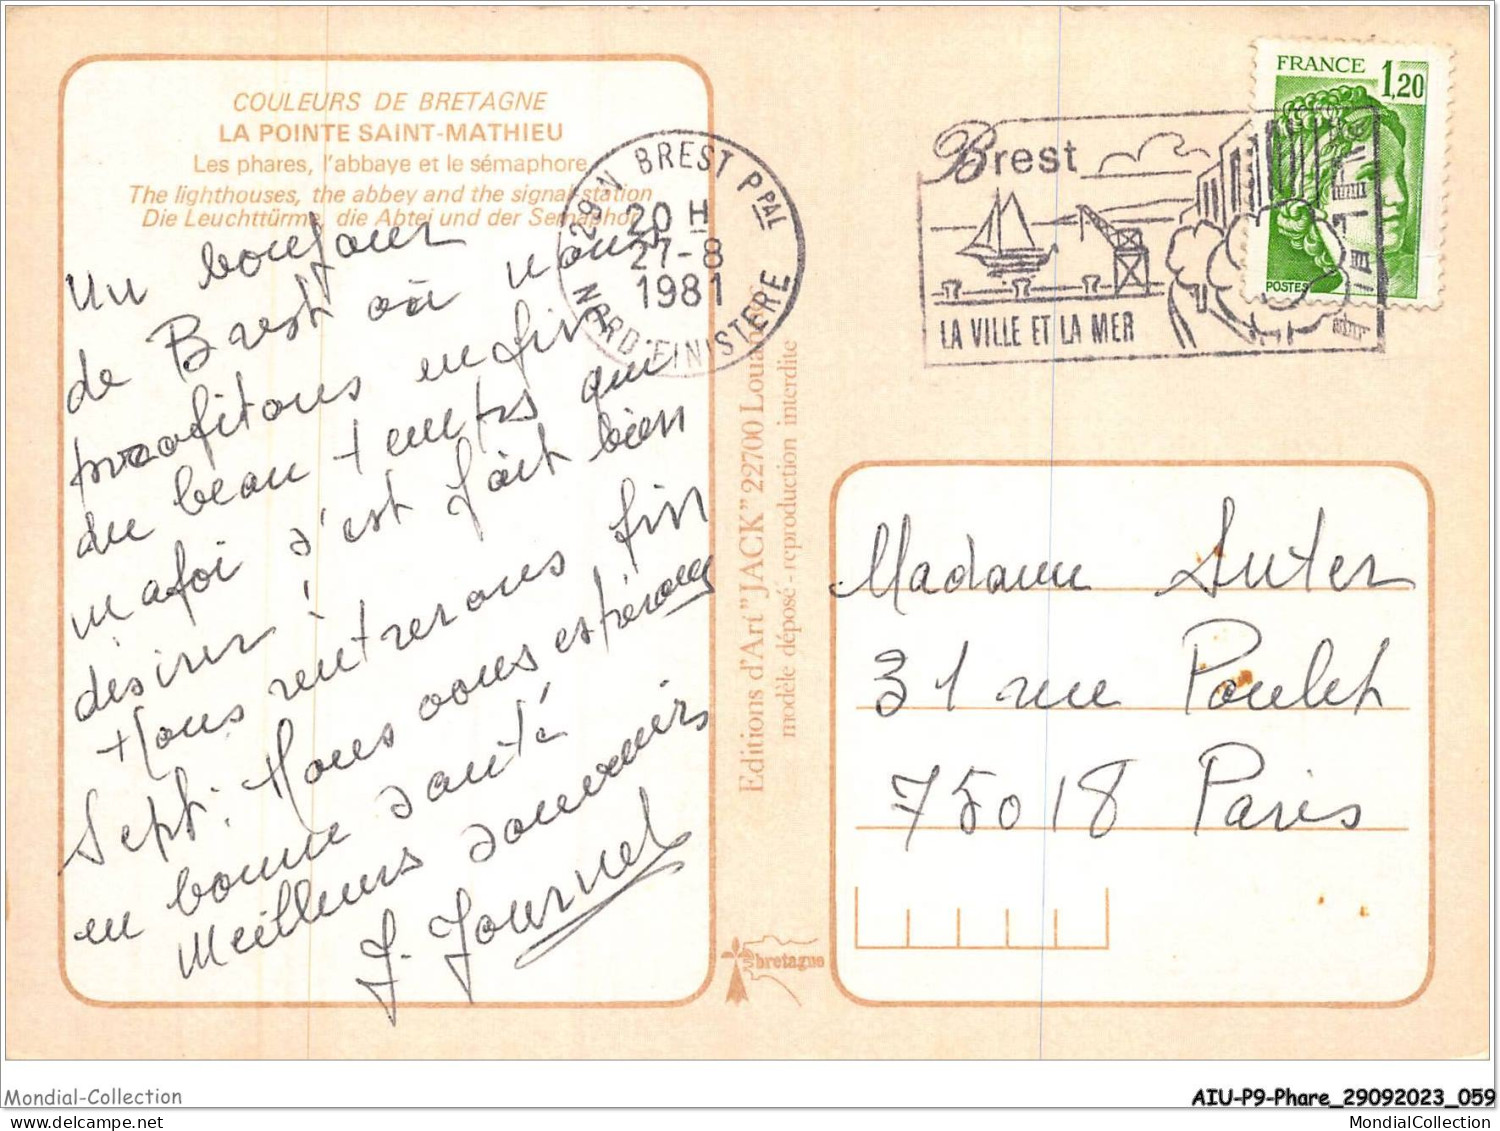 COULEURS DE BRETAGNE
LA POINTE SAINT-MATHIEU
Les phares, l'abbaye et le sémaphore
The lighthouses, the abbey and the signal-station
Die Leuchttürme, die Abtei und der Semaphor
Un bonjour
de Brest où nous
profitons enfin
du beau temps qui
ma foi s'est fait bien
désirer !
Nous rentrerons fin
Sept. Nous vous espérons
en bonne santé
Meilleurs souvenirs
J. Journel
29 N BREST PPAL
20 H
27-8
1981
NORD-FINISTERE
Editions d'Art "JACK" 22700 Louannec
modèle déposé - reproduction interdite
bretagne
Brest
LA VILLE ET LA MER
FRANCE 1,20
POSTES
Madame Suter
31 rue Poulet
75018 Paris
Mondial-Collection
AIU-P9-Phare_29092023_059
MondialCollection